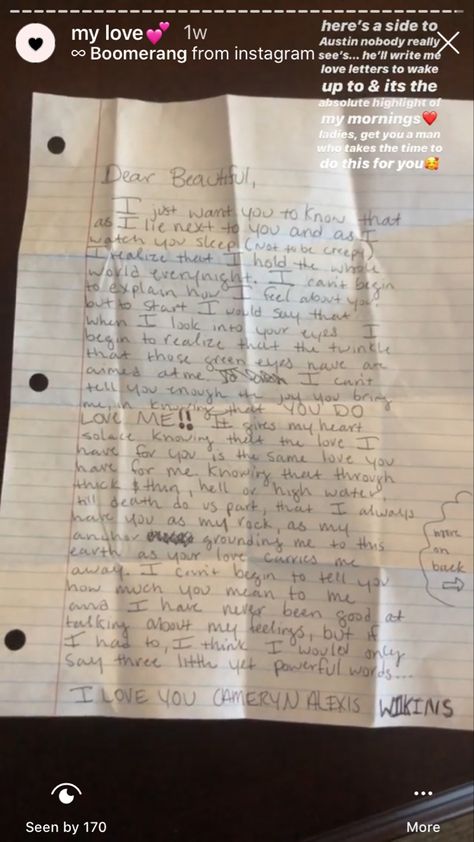 my love💕 1w
∞ Boomerang from instagram
here's a side to
Austin nobody really
see's... he'll write me
love letters to wake
up to & its the
absolute highlight of
my mornings❤️
ladies, get you a man
who takes the time to
do this for you🥰
Dear Beautiful,
I just want you to know that
as I lie next to you and as I
watch you sleep (not to be creepy)
I realize that I hold the whole
world everynight. I can't begin
to explain how I feel about you
but to start I would say that
when I look into your eyes I
begin to realize that the twinkle
that those green eyes have are
aimed at me. I can't
tell you enough the joy you bring
me, in knowing that YOU DO
LOVE ME!! It gives my heart
solace knowing that the love I
have for you is the same love you
have for me. Knowing that through
thick & thin, hell or high water,
till death do us part, that I always
have you as my rock, as my
anchor grounding me to this
earth as your love carries me
away. I can't begin to tell you
how much you mean to me
and I have never been good at
talking about my feelings, but if
I had to, I think I would only
say three little yet powerful words...
I LOVE YOU CAMERYN ALEXIS WILKINS
more
on
back
Seen by 170
More